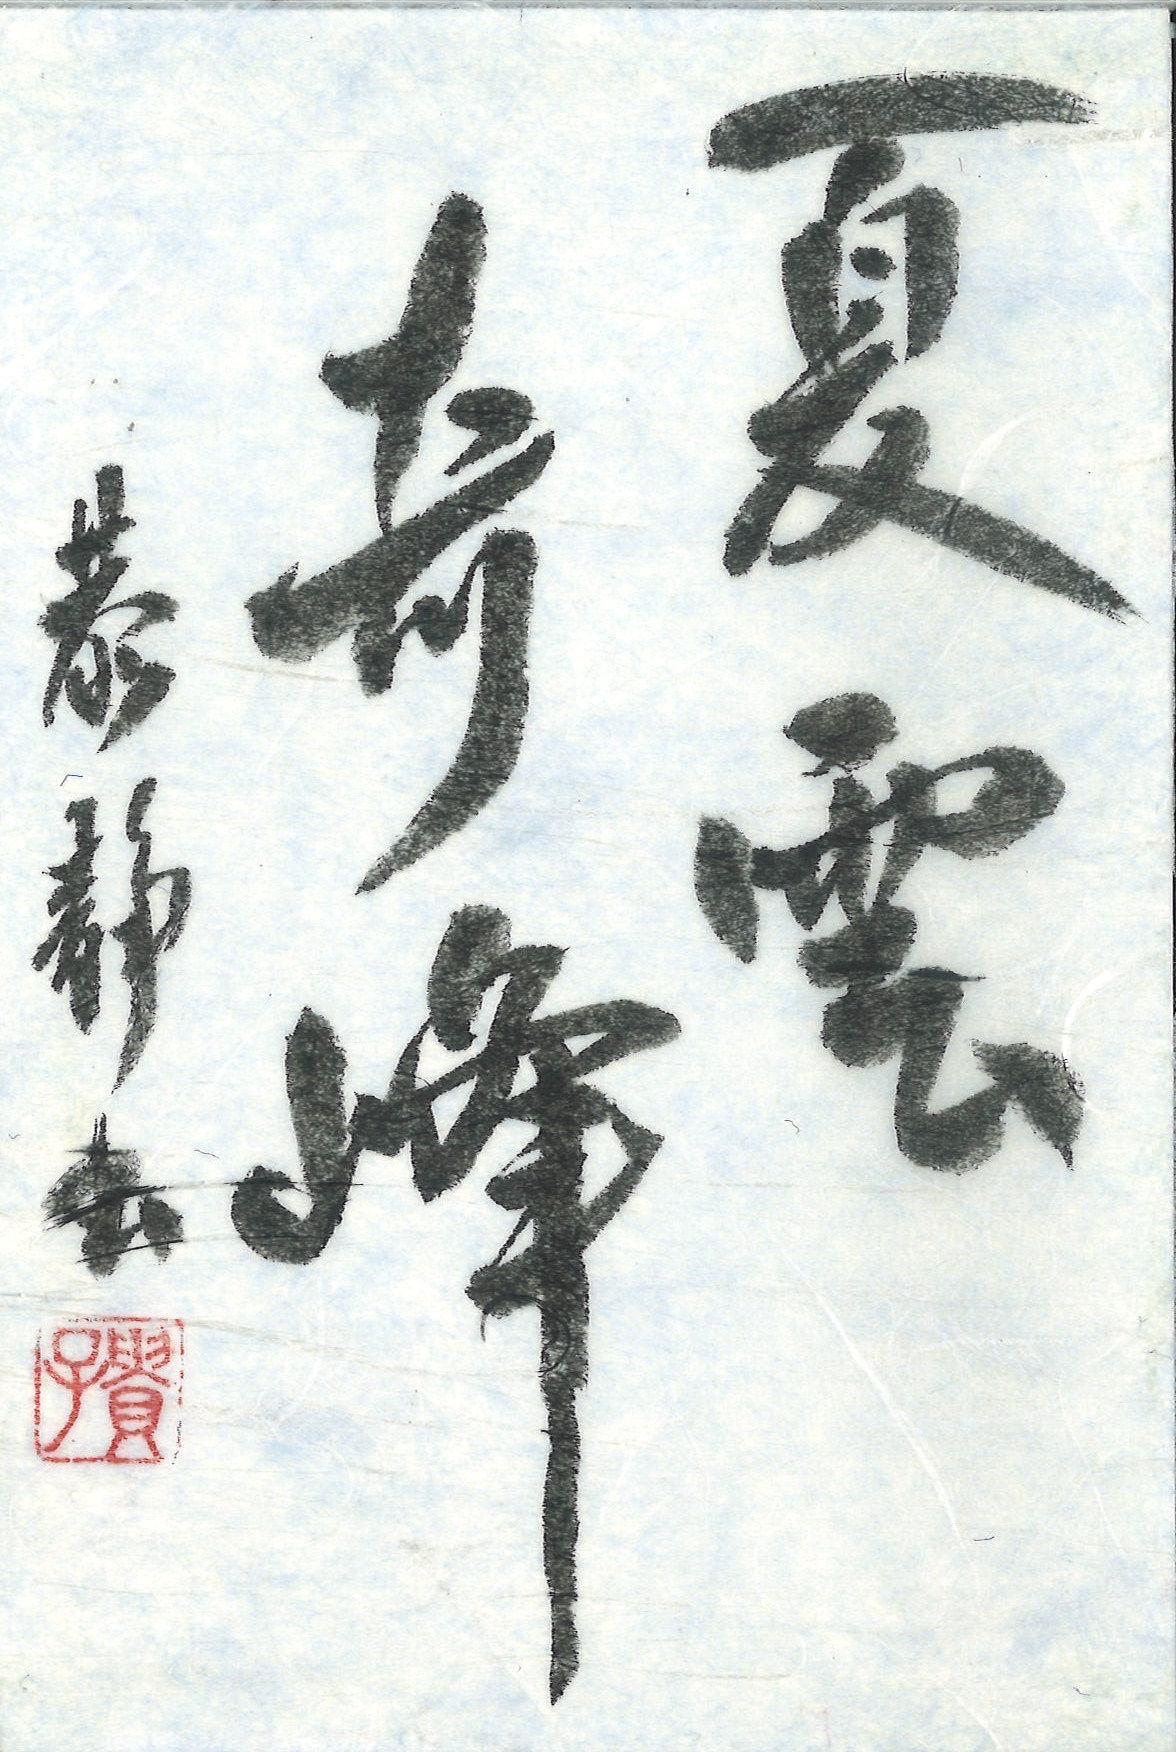 夏雲
奇峰
恭靜書